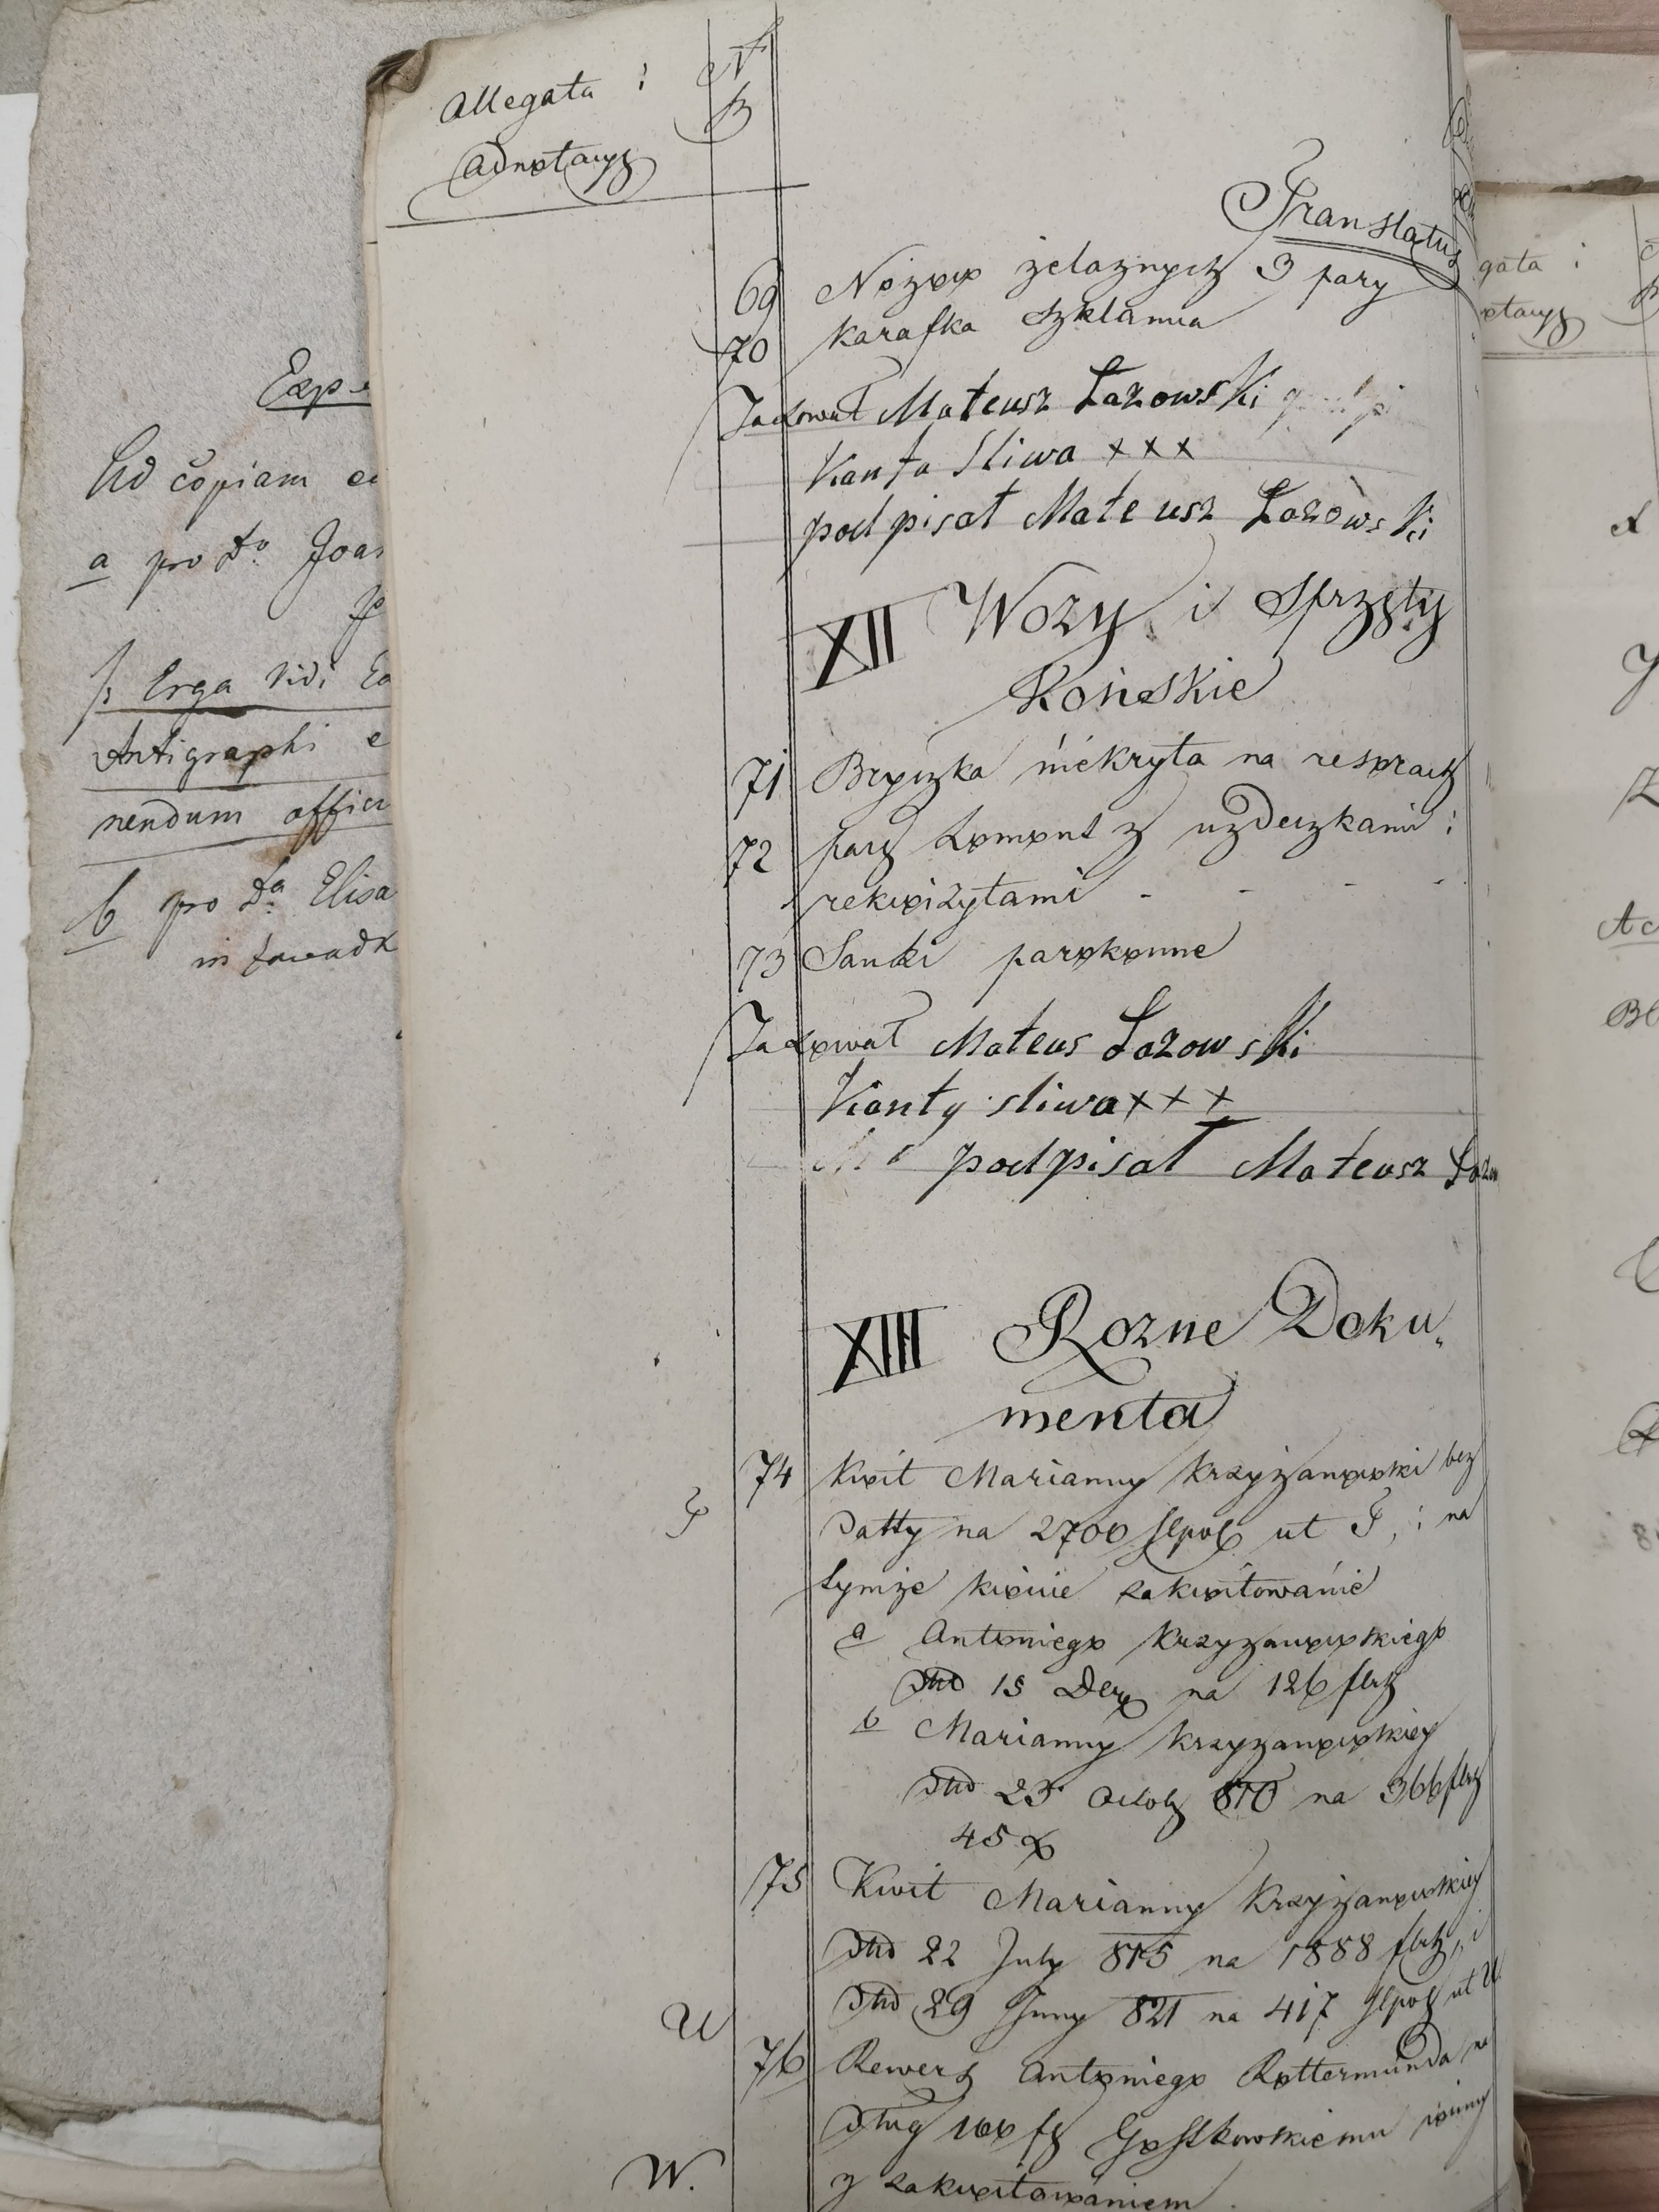 Allegata i
Adnotacye
N
B
Translatus
69 Nozow żelaznych 3 pary
70 Karafka szklanna
Tadował Mateusz Łazowski
Kanta Sliwa xxx
podpisał Mateusz Łazowski
XII Wozy i Sprzęty
Końskie
71 Bryczka niekryta na resorach
72 pary Lomont z uzdeczkami i
rekwizytami - - - -
73 Sanki parokonne
Tadował Mateus Łazowski
Kanty sliwa xxx
podpisał Mateusz Łazow
XIII Rozne Doku„
menta
74 Kwit Marianny Krzyżanowski bez
Datty na 2700 flpol ut T, i na
tymże kwicie zakwitowanie
a Antoniego Krzyzanowskiego
dtto 15 Decr na 126 flr
b Marianny Krzyzanowskiey
dtto 23 Octob 810 na 366 flr
45 x
T
75 Kwit Marianny Krzyżanowskiey
dtto 22 July 815 na 1888 flr, i
dtto 29 Juny 821 na 417 flpol ut U
U
76 Rewers Antoniego Rottermunda na
dług 100 f Gostkowskiemu winny
z zakwitowaniem
W.
Exp
Ad copiam
a pro Do Joa
/3 Erga vidi
Antigraphi e
nendum offici
b pro Da Elisa
in
gata i
otacye